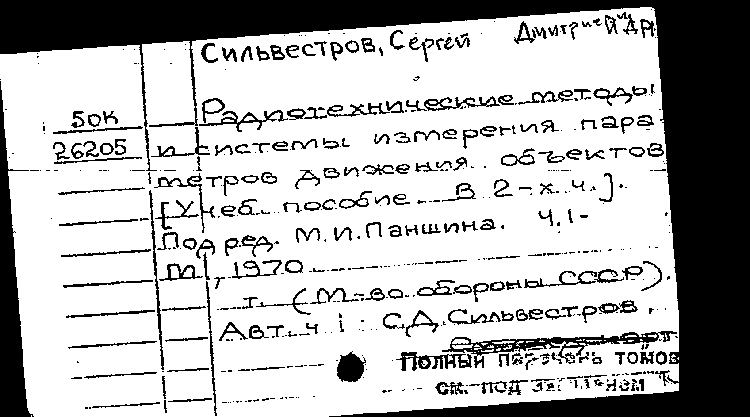 Сильвестров, Сергей Дмитриевич
50к Радиотехнические методы
26205 и системы измерения пара-
метров движения объектов
[Учеб. пособие. В 2-х ч.].
Под ред. М.И.Паншина. Ч.1-
М., 1970.
т. (М-во обороны СССР).
Авт. ч 1: С.Д.Сильвестров.
Полный перечень томов
см. под заглавием